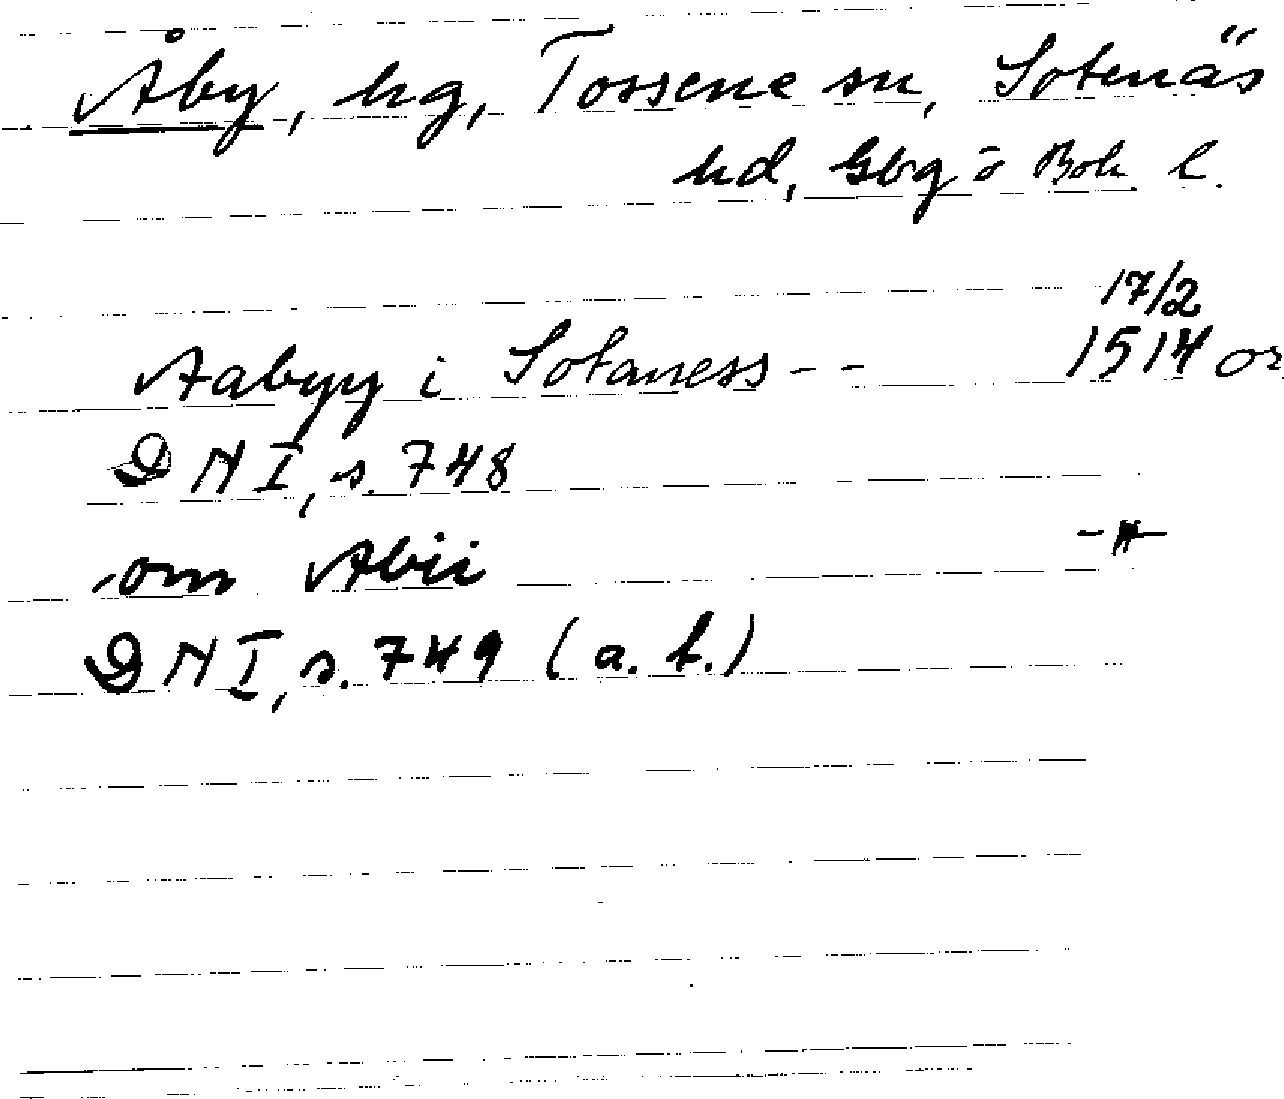 Åby, hg, Tossene sn, Sotenäs
hd, Gbg o Boh l.
17/2
Aabyy i Sotaness - - 1514 or
DN I, s. 748
om Abii -"-
DN I, s. 749 (a. b.)